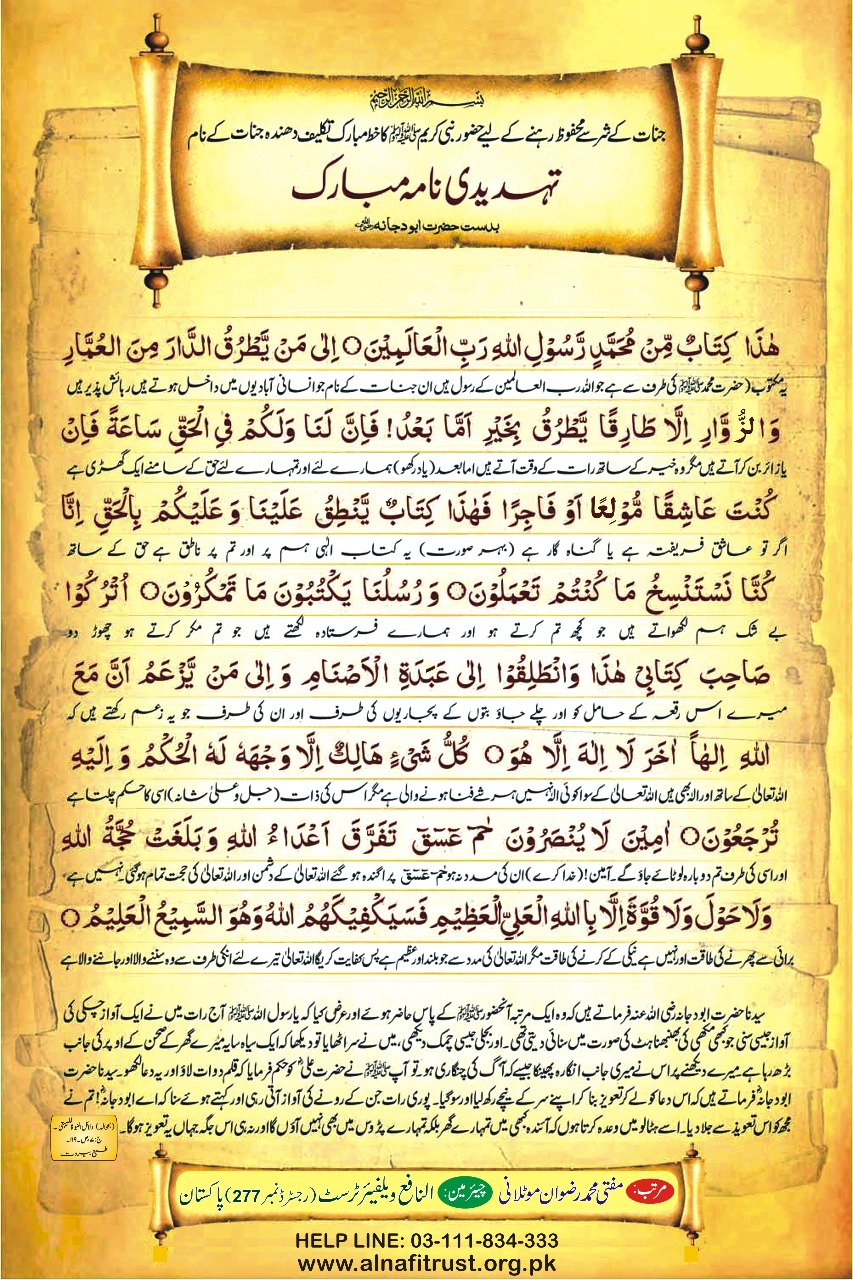 بسم اللہ الرحمن الرحیم
جنات کے شر سے محفوظ رہنے کے لیے حضور نبی کریم ﷺ کا خط مبارک تکلیف دھندہ جنات کے نام
تہدیدی نامہ مبارک
بدست حضرت ابودجانہ رضی اللہ عنہ
هٰذَا كِتَابٌ مِّنْ مُحَمَّدٍ رَّسُوْلِ اللهِ رَبِّ الْعَالَمِيْنَ○ اِلٰى مَنْ يَّطْرُقُ الدَّارَ مِنَ الْعُمَّارِ
یہ مکتوب (حضرت محمد ﷺ کی طرف سے ہے جو اللہ رب العالمین کے رسول ہیں ان جنات کے نام جو انسانی آبادیوں میں داخل ہوتے ہیں رہائش پذیر ہیں
وَالزُّوَّارِ اِلَّا طَارِقًا يَّطْرُقُ بِخَيْرٍ اَمَّا بَعْدُ! فَاِنَّ لَنَا وَلَكُمْ فِي الْحَقِّ سَاعَةً فَاِنْ
یا زائر بن کر آتے ہیں مگر وہ خیر کے ساتھ رات کے وقت آتے ہیں اما بعد (یاد رکھو) ہمارے لئے اور تمہارے لئے حق کے سامنے ایک گھڑی ہے
كُنْتَ عَاشِقًا مُّوْلِعًا اَوْ فَاجِرًا فَهٰذَا كِتَابٌ يَّنْطِقُ عَلَيْنَا وَعَلَيْكُمْ بِالْحَقِّ اِنَّا
اگر تو عاشق فریفتہ ہے یا گناہ گار ہے (بہر صورت) یہ کتاب الٰہی ہم پر اور تم پر ناطق ہے حق کے ساتھ
كُنَّا نَسْتَنْسِخُ مَا كُنْتُمْ تَعْمَلُوْنَ○ وَرُسُلُنَا يَكْتُبُوْنَ مَا تَمْكُرُوْنَ○ اُتْرُكُوْا
بے شک ہم لکھواتے ہیں جو کچھ تم کرتے ہو اور ہمارے فرستادہ لکھتے ہیں جو تم مکر کرتے ہو چھوڑ دو
صَاحِبَ كِتَابِيْ هٰذَا وَانْطَلِقُوْا اِلٰى عَبَدَةِ الْاَصْنَامِ وَاِلٰى مَنْ يَّزْعَمُ اَنَّ مَعَ
میرے اس رقعہ کے حامل کو اور چلے جاؤ بتوں کے پجاریوں کی طرف اور ان کی طرف جو یہ زعم رکھتے ہیں کہ
اللهِ اِلٰهاً اٰخَرَ لَا اِلٰهَ اِلَّا هُوَ○ كُلُّ شَيْءٍ هَالِكٌ اِلَّا وَجْهَهٗ لَهُ الْحُكْمُ وَاِلَيْهِ
اللہ تعالیٰ کے ساتھ اور الہ بھی ہیں اللہ تعالیٰ کے سوا کوئی الہ نہیں ہر شے فنا ہونے والی ہے مگر اس کی ذات (جل وعلیٰ شانہ) اسی کا حکم چلتا ہے
تُرْجَعُوْنَ○ اٰمِيْنَ لَا يُنْصَرُوْنَ حٰمٓ عٓسٓقٓ تَفَرَّقَ اَعْدَاءُ اللهِ وَبَلَغَتْ حُجَّةُ اللهِ
اور اسی کی طرف تم دوبارہ لوٹائے جاؤ گے۔ آمین! (خدا کرے) ان کی مدد نہ ہو حٰمٓ عٓسٓقٓ پراگندہ ہو گئے اللہ تعالیٰ کے دشمن اور اللہ تعالیٰ کی حجت تمام ہو گئی۔ نہیں ہے
وَلَا حَوْلَ وَلَا قُوَّةَ اِلَّا بِاللهِ الْعَلِيِّ الْعَظِيْمِ فَسَيَكْفِيْكَهُمُ اللهُ وَهُوَ السَّمِيْعُ الْعَلِيْمُ○
برائی سے پھرنے کی طاقت اور نہیں ہے نیکی کے کرنے کی طاقت مگر اللہ تعالیٰ کی مدد سے جو بلند اور عظیم ہے پس کفایت کریگا اللہ تعالیٰ تیرے لئے انکی طرف سے وہ سننے والا اور جاننے والا ہے
سیدنا حضرت ابودجانہ رضی اللہ عنہ فرماتے ہیں کہ وہ ایک مرتبہ آنحضور ﷺ کے پاس حاضر ہوئے اور عرض کیا کہ یا رسول اللہ ﷺ آج رات میں نے ایک آواز چکی کی
آواز جیسی سنی جو کبھی مکھی کی بھنبھناہٹ کی صورت میں سنائی دیتی تھی۔ اور بجلی جیسی چمک دیکھی، میں نے سر اٹھایا تو دیکھا کہ ایک سیاہ سایہ میرے گھر کے صحن کے اوپر کی جانب
بڑھ رہا ہے میرے دیکھنے پر اس نے میری جانب انگارہ پھینکا جیسے کہ آگ کی چنگاری ہو۔ تو آپ ﷺ نے حضرت علیؓ کو حکم فرمایا کہ قلم دوات لاؤ اور یہ دعا لکھو۔ سیدنا حضرت
ابودجانہؓ فرماتے ہیں کہ اس دعا کو لے کر تعویز بنا کر اپنے سر کے نیچے رکھ لیا اور سو گیا۔ پوری رات جن کے رونے کی آواز آتی رہی اور کہتے ہوئے سنا کہ اے ابودجانہؓ! تم نے
مجھ کو اس تعویذ سے جلا دیا۔ اسے ہٹا لو میں وعدہ کرتا ہوں کہ آئندہ کبھی میں تمہارے گھر بلکہ تمہارے پڑوس میں بھی نہیں آؤں گا اور نہ ہی اس جگہ جہاں یہ تعویز ہوگا۔
مرتب: مفتی محمد رضوان موٹلانی چیئرمین: النافع ویلفیئر ٹرسٹ (رجسٹرڈ نمبر 277) پاکستان
HELP LINE: 03-111-834-333
www.alnafitrust.org.pk